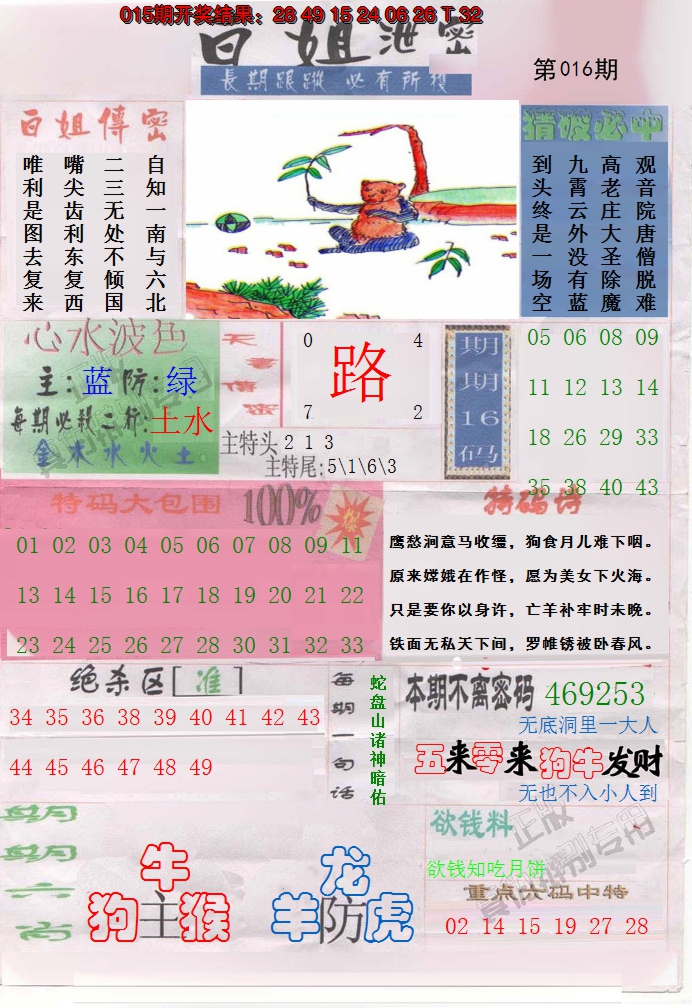 015期开奖结果：28 49 15 24 06 26 T 32
白姐泄密
長期跟蹤 必有所獲
第016期
白姐傳密
自知一南与六北
二三无处不倾国
嘴尖齿利东复西
唯利是图去复来
猜波必中
观音院唐僧脱难
高老庄大圣除魔
九霄云外没有蓝
到头终是一场空
心水波色
主:蓝防:绿
每期必殺二行:土水
金木水火土
0 4
路
7 2
主特头213
主特尾:5\1\6\3
期期16码
05 06 08 09
11 12 13 14
18 26 29 33
35 38 40 43
特码大包围 100%
01 02 03 04 05 06 07 08 09 11
13 14 15 16 17 18 19 20 21 22
23 24 25 26 27 28 30 31 32 33
特码诗
鹰愁涧意马收缰，狗食月儿难下咽。
原来嫦娥在作怪，愿为美女下火海。
只是要你以身许，亡羊补牢时未晚。
铁面无私天下间，罗帷锈被卧春风。
绝杀区[准]
34 35 36 38 39 40 41 42 43
44 45 46 47 48 49
每期一句话
蛇盘山诸神暗佑
本期不离密码 469253
无底洞里一大人
五来零来狗牛发财
无也不入小人到
牛
狗主猴
龙
羊防虎
欲钱料
欲钱知吃月饼
重点六码中特
02 14 15 19 27 28